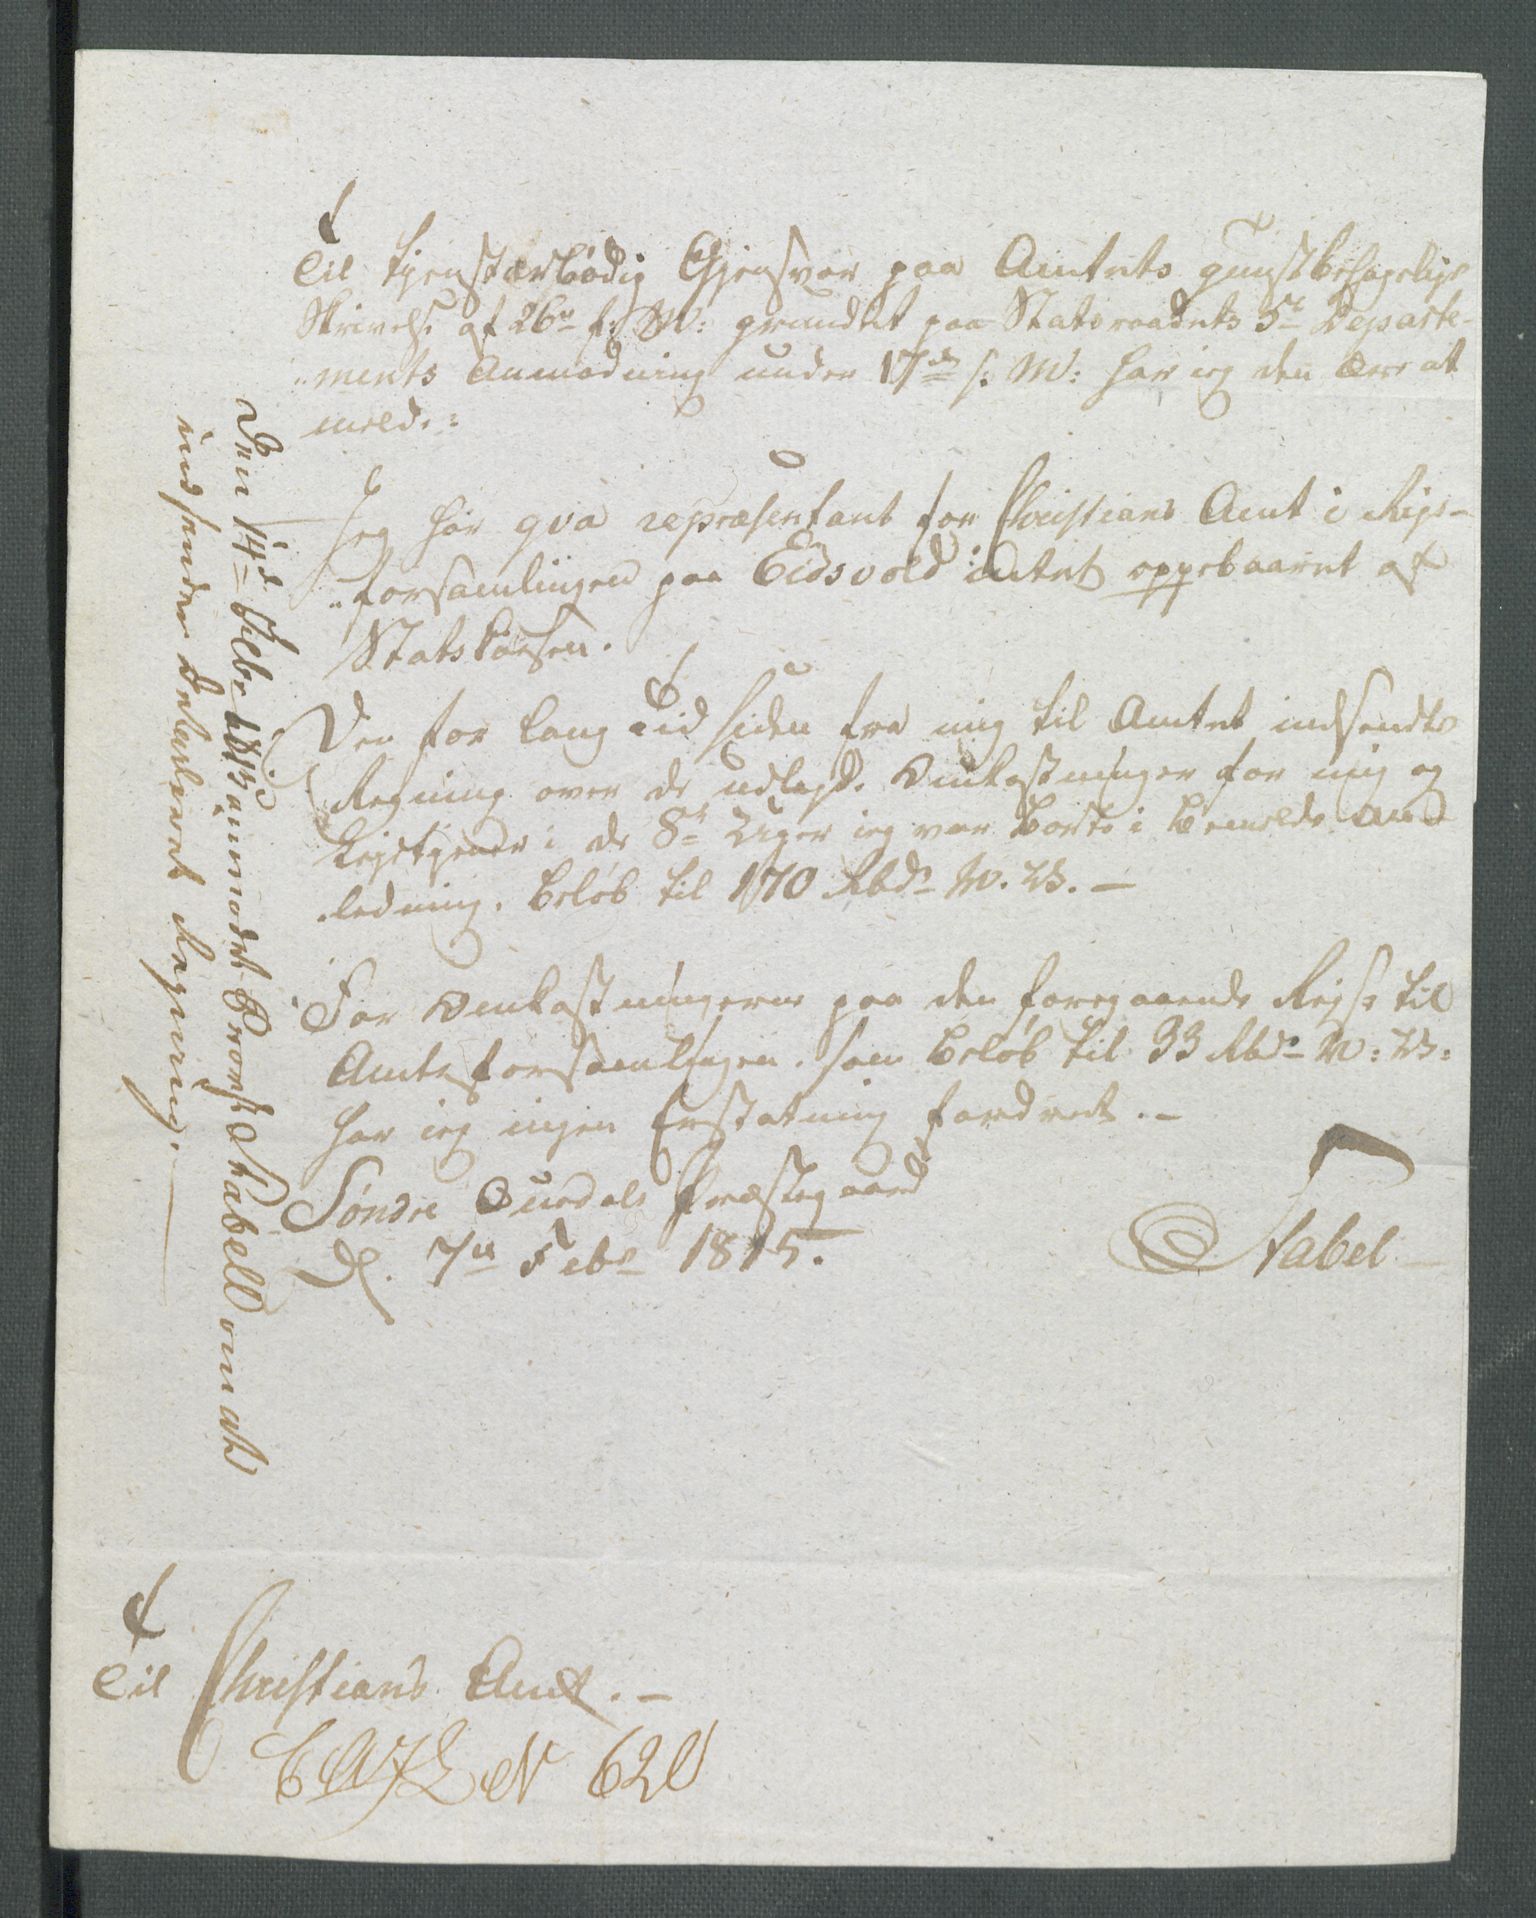 Til tjenstærbødig Gjensvar paa Amtets gunstbehagelige
Skrivelse af 26de f: M: grundet paa Statsraadets 5te Departe-
"ments Anmodning under 17de s. M: har ieg den Ære at
melde:
Jeg har qva repræsentant for Christians Amt i Rigs-
"forsamlingen paa Eidsvold intet oppebaaret af
Statskassen.
Den for lang Tid siden fra mig til Amtet indsendte
Regning over de udlagde Omkostninger for mig og
Rejsetjener i de 8te Uger ieg var borte i bemeldte And
ledning, beløb til 170 Rbdr N. V. —
For Omkostningerne paa den foregaaende Rejse til
Amtsforsamlingen, som beløb til 33 Rbdr N: V:
har ieg ingen Erstatning fordret. —
Søndre Ourdals Præstegaard
D. 7de Febr 1815.
Stabel
Den 14de Febr 1815 anmodet Provst Stabell om at
indsende Detailleret Regning.
Til Christians Amt. —
N 620